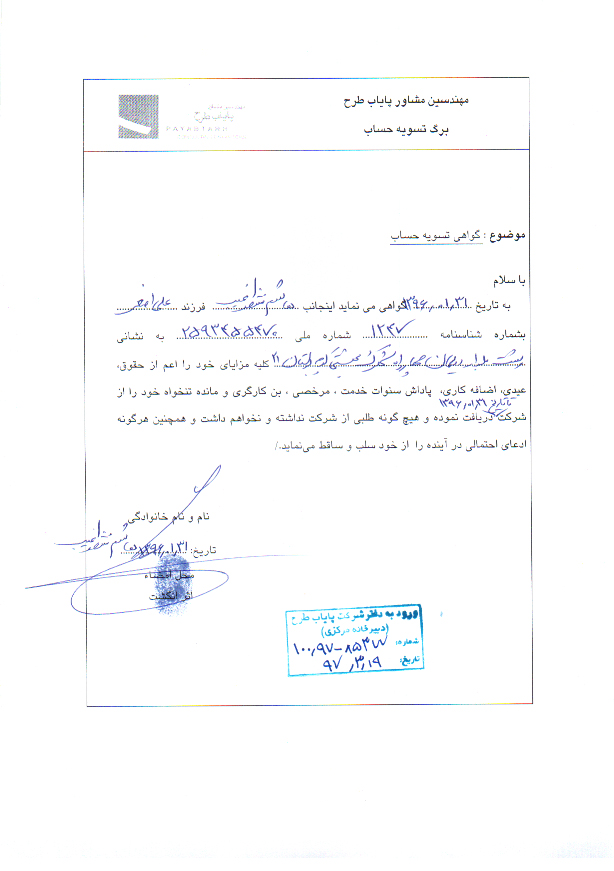 مهندسین مشاور پایاب طرح
برگ تسویه حساب
پایاب طرح
موضوع : گواهی تسویه حساب
با سلام
به تاریخ ۱۳۹۶,۰۱,۳۱ گواهی می نماید اینجانب هاشم فرزند علی اصغر
بشماره شناسنامه ۱۲۴۷ شماره ملی ۲۵۹۳۴۵۵۴۷۰ به نشانی
۲۱ کلیه مزایای خود را اعم از حقوق,
عیدی, اضافه کاری, پاداش سنوات خدمت ، مرخصی ، بن کارگری و مانده تنخواه خود را از
تا تاریخ ۱۳۹۶,۰۱,۳۱
شرکت دریافت نموده و هیچ گونه طلبی از شرکت نداشته و نخواهم داشت و همچنین هرگونه
ادعای احتمالی در آینده را از خود سلب و ساقط می‌نماید./
نام و نام خانوادگی
هاشم
تاریخ: ۱۳۹۶,۰۱,۳۱
محل امضاء
اثر انگشت
ورود به دفتر شرکت پایاب طرح
(دبیرخانه مرکزی)
شماره: ۱۰۰,۹۷-۸۵۳۷
تاریخ: ۹۷,۳,۱۹